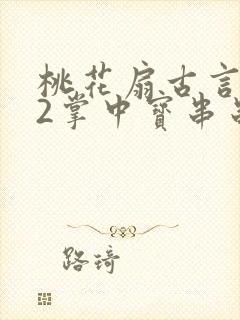 桃花扇古言
2掌中寳串
路琦